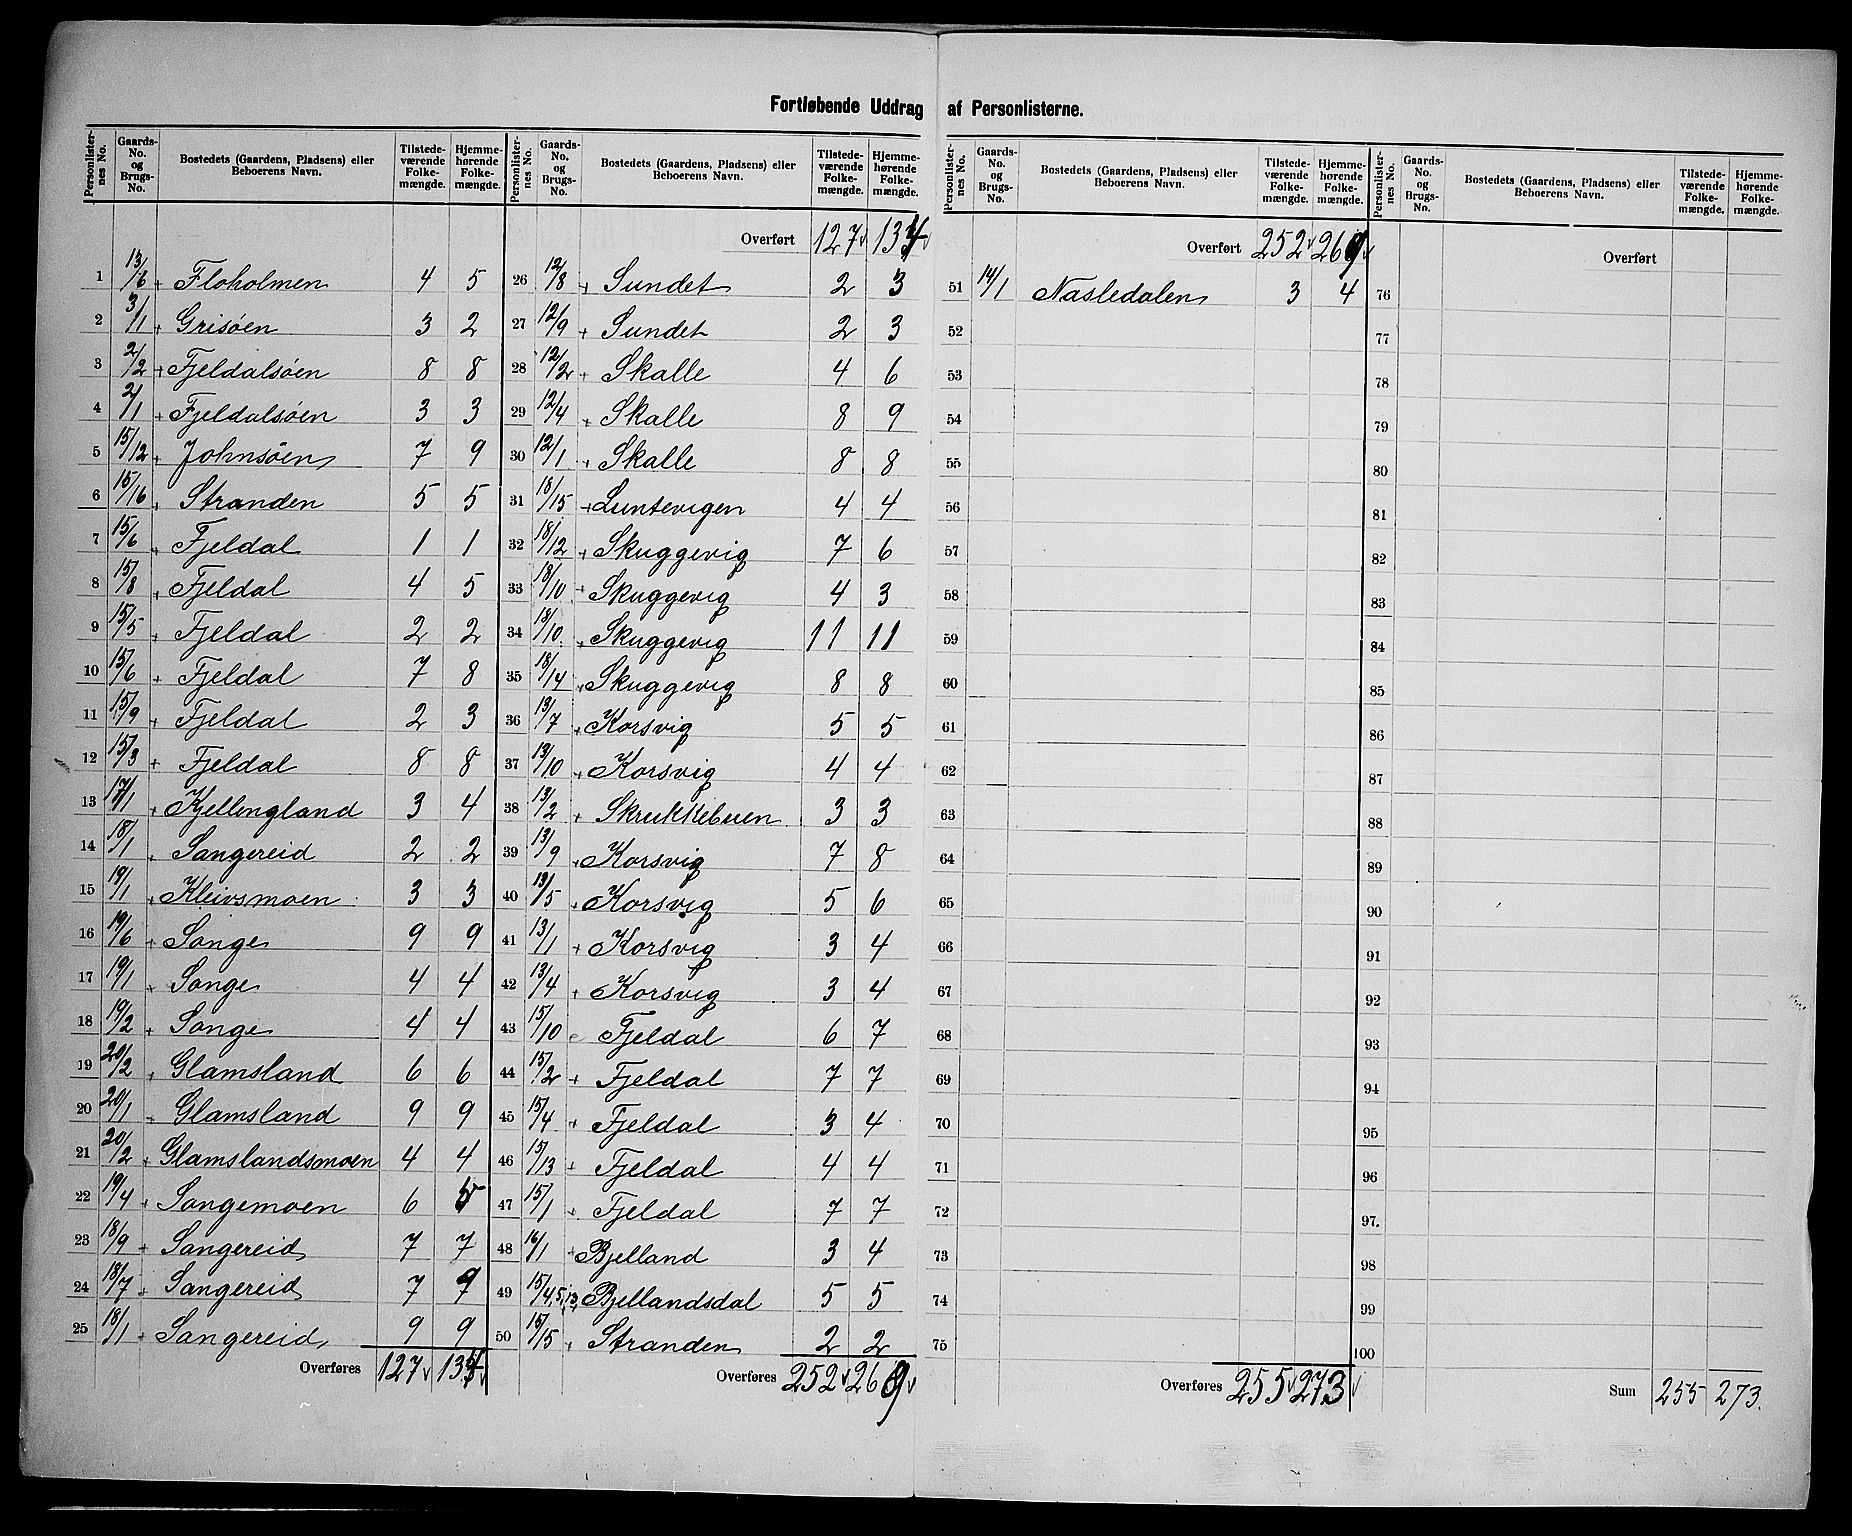 Fortløbende Uddrag af Personlisterne.
Personlister-nes No. Gaards-No. og Brugs-No. Bostedets (Gaardens, Pladsens) eller Beboerens Navn. Tilstede-værende Folke-mængde. Hjemme-hørende Folke-mængde.
1 13/16 + Floholmen 4 5
2 3/1 + Grisöen 3 2
3 2/2 + Fjeldalsöen 8 8
4 2/1 + Fjeldalsöen 3 3
5 15/12 + Johnsöen 7 9
6 15/16 + Stranden 5 5
7 15/6 + Fjeldal 1 1
8 15/8 + Fjeldal 4 5
9 15/5 + Fjeldal 2 2
10 15/6 + Fjeldal 7 8
11 15/9 + Fjeldal 2 3
12 15/3 + Fjeldal 8 8
13 17/1 + Kjellingland 3 4
14 18/1 + Sangereid 2 2
15 19/1 + Kleivsmoen 3 3
16 19/6 + Sange 9 9
17 19/1 + Sange 4 4
18 19/2 + Sange 4 4
19 20/2 + Glamsland 6 6
20 20/1 + Glamsland 9 9
21 20/2 + Glamslandsmoen 4 4
22 19/4 + Sangemoen 6 5
23 18/9 + Sangereid 7 7
24 18/7 + Sangereid 7 9
25 18/1 + Sangereid 9 9
Overføres 127 134
Personlister-nes No. Gaards-No. og Brugs-No. Bostedets (Gaardens, Pladsens) eller Beboerens Navn. Tilstede-værende Folke-mængde. Hjemme-hørende Folke-mængde.
Overført 127 134
26 12/8 + Sundet 2 3
27 12/9 + Sundet 2 3
28 12/2 + Skalle 4 6
29 12/4 + Skalle 8 9
30 12/1 + Skalle 8 8
31 18/15 + Luntevigen 4 4
32 18/12 + Skuggevig 7 6
33 18/10 + Skuggevig 4 3
34 18/10 + Skuggevig 11 11
35 18/14 + Skuggevig 8 8
36 13/7 + Korsvig 5 5
37 13/10 + Korsvig 4 4
38 13/2 + Skrukkebuen 3 3
39 13/9 + Korsvig 7 8
40 13/5 + Korsvig 5 6
41 13/1 + Korsvig 3 4
42 13/4 + Korsvig 3 4
43 15/10 Fjeldal 6 7
44 15/2 + Fjeldal 7 7
45 15/4 + Fjeldal 3 4
46 15/13 + Fjeldal 4 4
47 15/1 + Fjeldal 7 7
48 16/1 + Bjelland 3 4
49 15/4,5,13 Bjellandsdal 5 5
50 15/15 + Stranden 2 2
Overføres 252 269
Personlister-nes No. Gaards-No. og Brugs-No. Bostedets (Gaardens, Pladsens) eller Beboerens Navn. Tilstede-værende Folke-mængde. Hjemme-hørende Folke-mængde.
Overført 252 269
51 14/1 Nasledalen 3 4
52
53
54
55
56
57
58
59
60
61
62
63
64
65
66
67
68
69
70
71
72
73
74
75
Overføres 255 273
Personlister-nes No. Gaards-No. og Brugs-No. Bostedets (Gaardens, Pladsens) eller Beboerens Navn. Tilstede-værende Folke-mængde. Hjemme-hørende Folke-mængde.
Overført
76
77
78
79
80
81
82
83
84
85
86
87
88
89
90
91
92
93
94
95
96
97.
98
99
100
Sum 255 273.